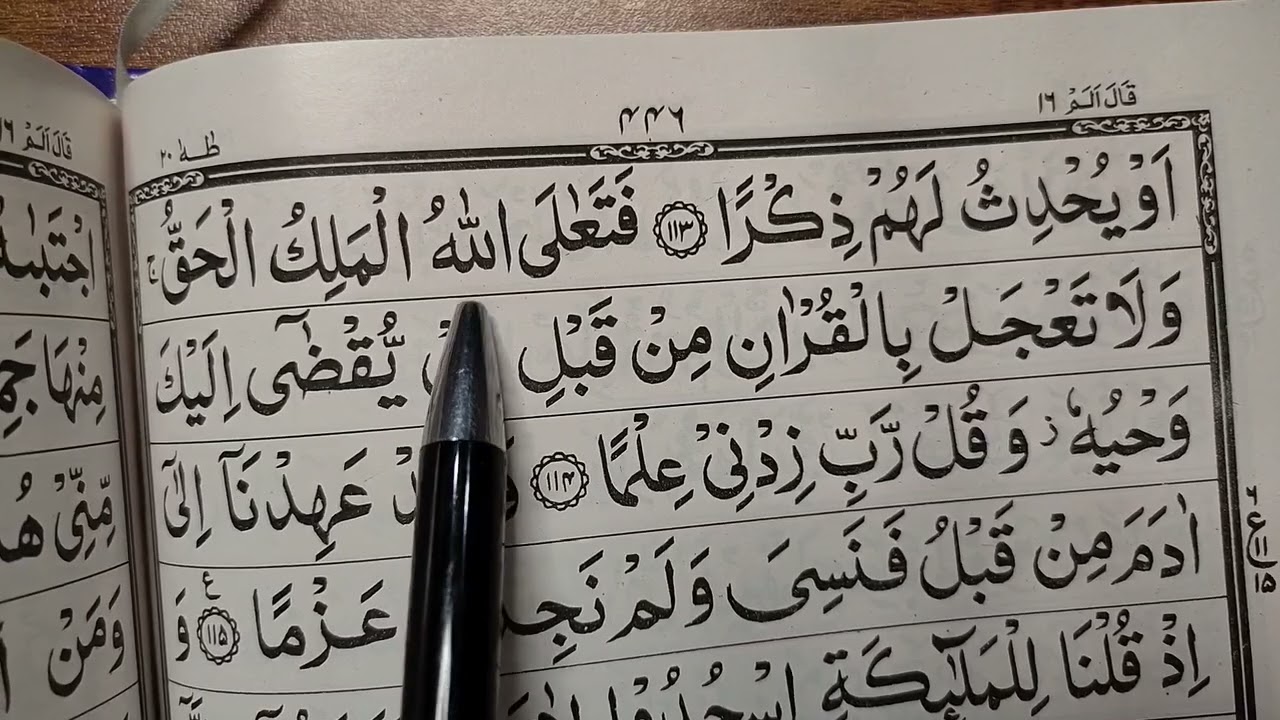 طٰهٰ ٢٠
٤٤٦
قَالَ اَلَمْ ١٦
اَوْ يُحْدِثُ لَهُمْ ذِكْرًا ﴿١١٣﴾ فَتَعٰلَى اللّٰهُ الْمَلِكُ الْحَقُّ ۚ
وَلَا تَعْجَلْ بِالْقُرْاٰنِ مِنْ قَبْلِ يُّقْضٰٓى اِلَيْكَ
وَحْيُهٗ ز وَقُلْ رَّبِّ زِدْنِىْ عِلْمًا ﴿١١٤﴾ عَهِدْنَآ اِلٰٓى
اٰدَمَ مِنْ قَبْلُ فَنَسِىَ وَلَمْ نَجِدْ عَزْمًا ﴿١١٥﴾ ع وَ
اِذْ قُلْنَا لِلْمَلٰٓئِكَةِ اسْجُدُوْا
قَالَ اَلَمْ ١٦
اجْتَبٰىهُ
مِنْهَا
مِّنِّىْ
وَمَنْ